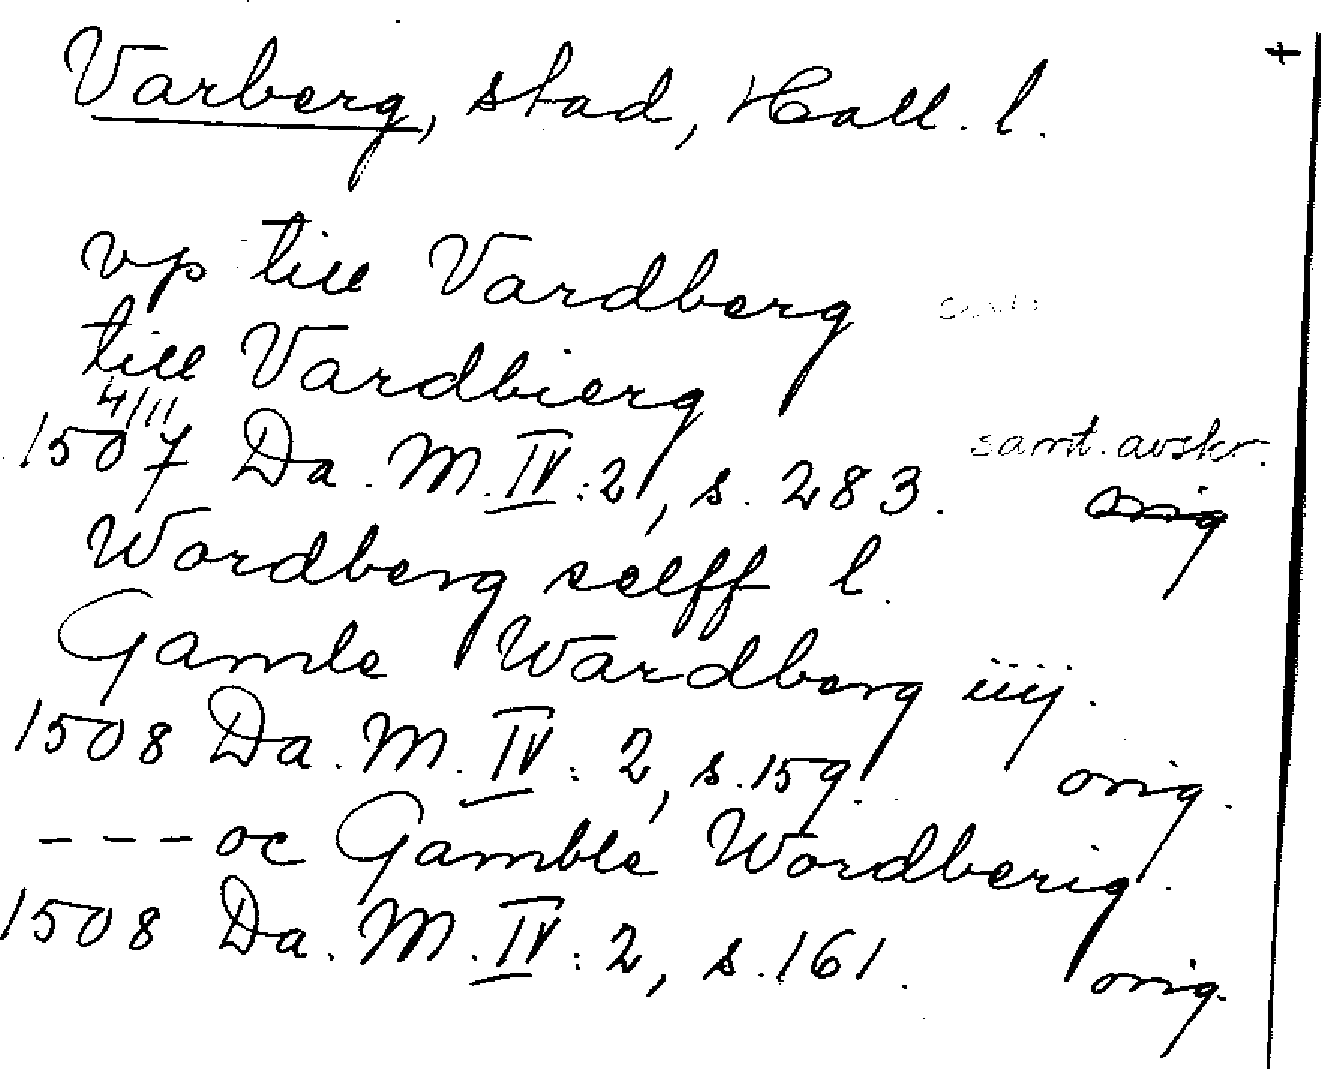 Varberg, stad, Hall. l. +
vp till Vardberg
till Vardbierg
4/11
1507 Da. M. IV:2, s. 283. samt. avskr.
orig
Wordberg selff l.
Gamle Wardberg iiij.
1508 Da. M. IV: 2, s. 159. orig.
--- oc Gamble Wordberig.
1508 Da. M. IV: 2, s. 161. orig.